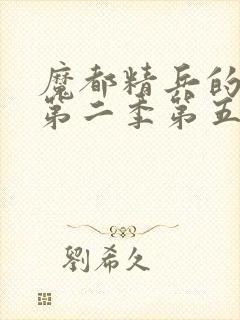 魔都精兵的
第二季第五
劉希久